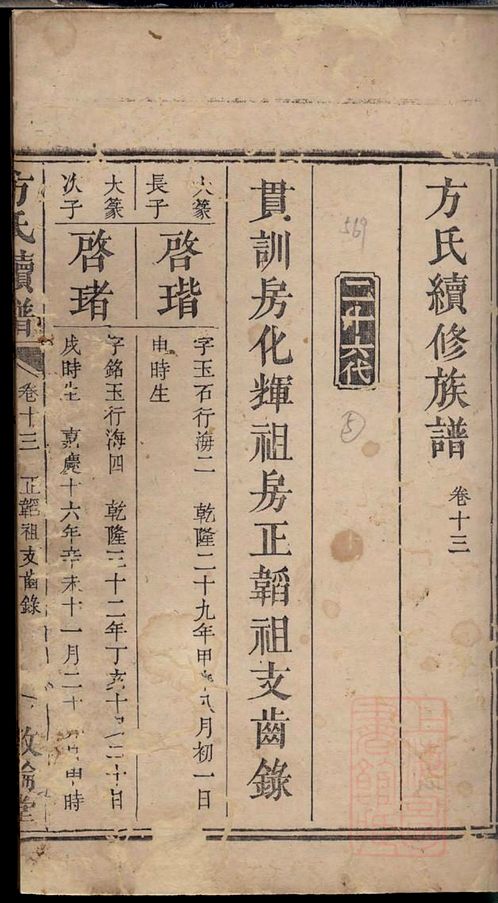 方氏續修族譜 卷十三
569
二十六代
5
貫訓房化輝祖房正韜祖支齒錄
大篆長子
啓瑎
字玉石行海二 乾隆二十九年甲 八月初一日
申時生
大篆次子
啓琽
字銘玉行海四 乾隆三十二年丁亥十 二十日
戌時生 嘉慶十六年辛未十一月二十 申時
方氏續譜 卷十三 正韜祖支齒錄 一 敦倫堂